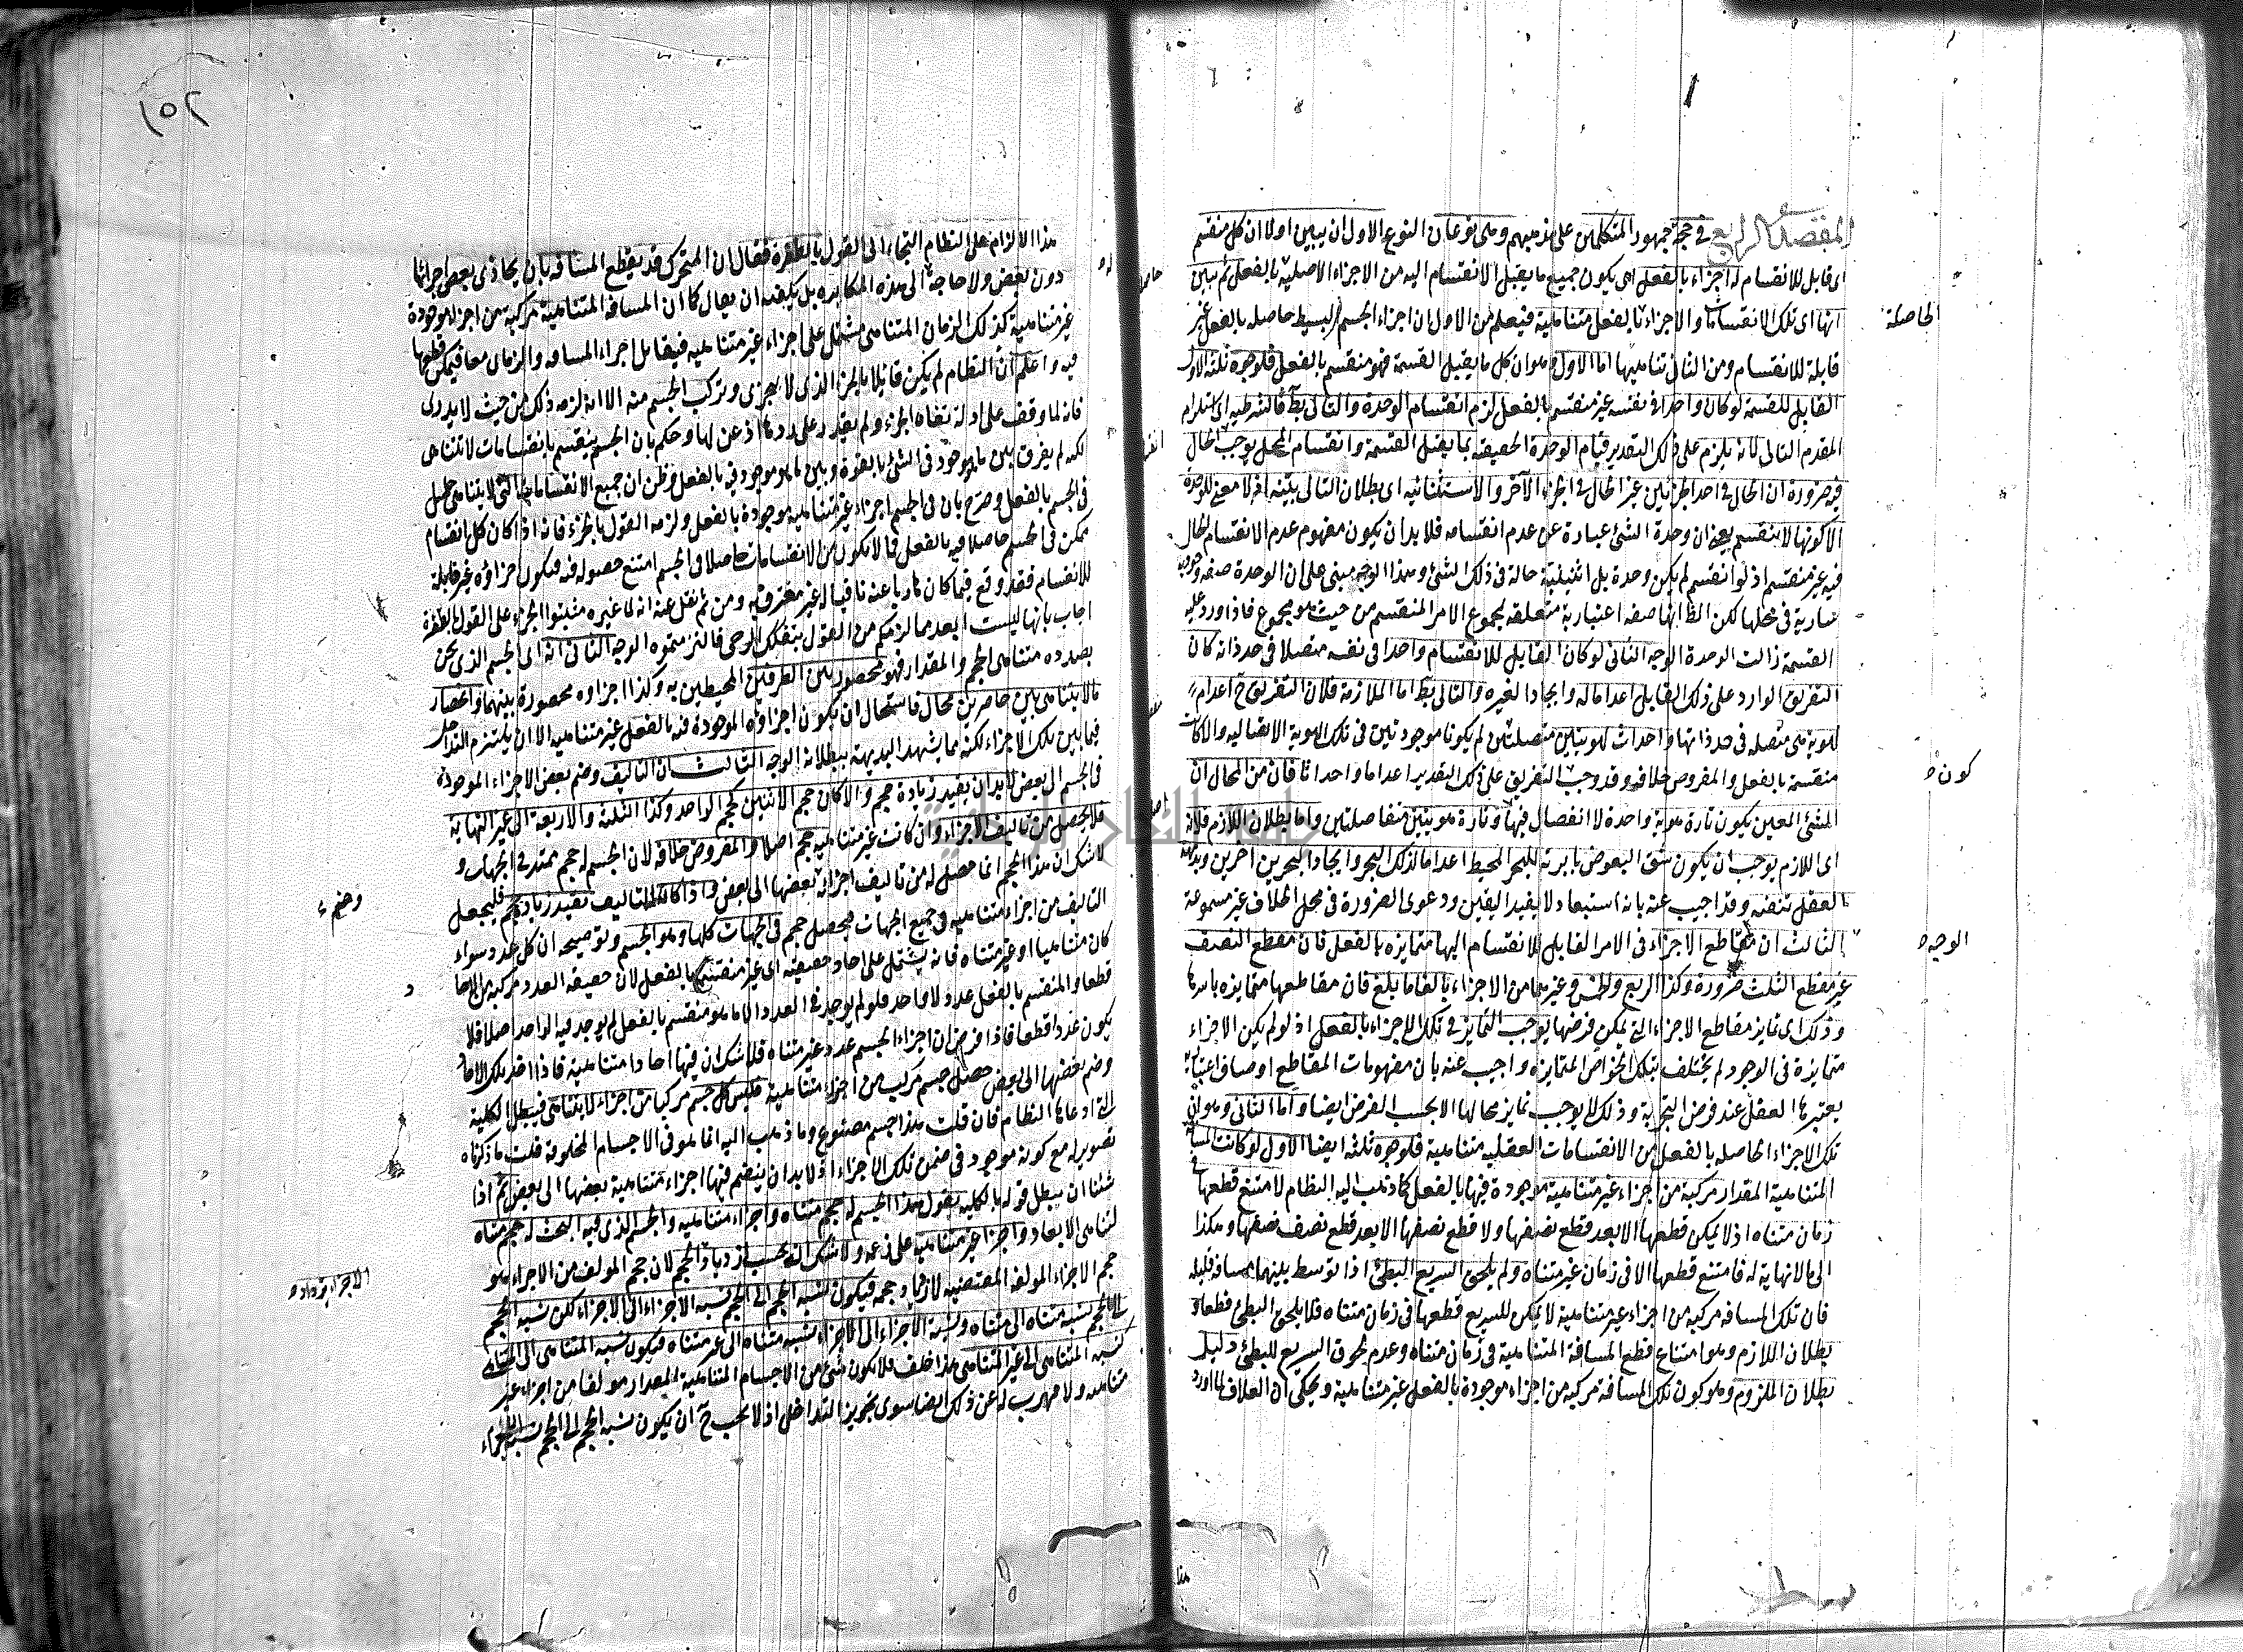 المقصد الرابع في حجة جمهور المتكلمين على مذهبهم وهي نوعان النوع الاول ان يبين اولا ان كل منقسم
اى قابل للانقسام له اجزاء بالفعل اى يكون جميع ما يقبل الانقسام اليه من الاجزاء الاصلية بالفعل ثم يبين
انها اى تلك الانقسامات والاجزاء بالفعل متناهية فيعلم من الاول ان اجزاء الجسم البسيط حاصله بالفعل غير
الحاصلة
قابلة للانقسام ومن الثاني تناهيها اما الاول وهو ان كل ما يقبل القسمة فهو منقسم بالفعل فلوجوه ثلثة الاول
القابل للقسمة لو كان واحدا في نفسه غير منقسم بالفعل لزم انقسام الوحدة والتالى بط فالشرطيه اى استلزام
المقدم التالى لانه يلزم على ذلك التقدير قيام الوحدة الحقيقية بما يقبل القسمة وانقسام المحل يوجب انقسام الحال
فيه ضرورة ان الحال في احد الجزئين غير الحال في الجزء الآخر والاستثنائيه اى بطلان التالى بينة اذ لا معنى للوحدة
الا كونها لا ينقسم يعنى ان وحدة الشئ عبارة عن عدم انقسامه فلا بد ان يكون مفهوم عدم الانقسام الحال
فيه غير منقسم اذ لو انقسم لم يكن وحدة بل اثنينية حالة في ذلك الشئ وهذا الوجه مبنى على ان الوحدة صفة وجودية
سارية في محلها لكن الظ انها صفه اعتبارية متعلقه بمجموع الامر المنقسم من حيث هو مجموع فاذا اورد عليه
القسمة زالت الوحدة الوجه الثاني لو كان القابل للانقسام واحدا في نفسه متصلا في حد ذاته كان
التفريق الوارد على ذلك القابل اعداما له وايجادا لغيره والتالى بط اما الملازمة فلان التفريق ح اعدام
لهوية هى متصله في حد ذاتها واحداث لهويتين متصلتين لم يكونا موجودتين في تلك الهوية الاتصاليه والا كانت
منقسمة بالفعل والمفروض خلافه وقد وجب التفريق على ذلك التقدير اعداما واحداثا فان من المحال ان
كون
الشئ المعين يكون تارة هوية واحدة لا انفصال فيها وتارة هويتين منفاصلتين واما بطلان اللازم فلانه
اى اللازم يوجب ان يكون شق البعوض بابرته للبحر المحيط اعداما لذلك البحر وايجادا لبحرين اخرين وبديهة
العقل تنفيه وقد اجيب عنه بانه استبعاد لا يفيد اليقين ودعوى الضرورة في محل الخلاف غير مسموعة
الثالث ان مقاطع الاجزاء في الامر القابل للانقسام اليها متمايزه بالفعل فان مقطع النصف
الوجه
غير مقطع الثلث ضرورة وكذا الربع والخمس وغيرهما من الاجزاء بالغا ما بلغ فان مقاطعها متمايزه باسرها
وذلك اى تمايز مقاطع الاجزاء التى يمكن فرضها يوجب التمايز في تلك الاجزاء بالفعل اذ لو لم يكن الاجزاء
متمايزة في الوجود لم يختلف بتلك الخواص المتمايزه واجيب عنه بان مفهومات المقاطع اوصاف اعتبارية
يعتبرها العقل عند فرض التجزية وذلك لا يوجب تمايز محالها الا بحسب الفرض ايضا واما الثاني وهو ان
تلك الاجزاء الحاصله بالفعل من الانقسامات العقليه متناهية فلوجوه ثلثه ايضا الاول لو كانت المسافة
المتناهية المقدار مركبة من اجزاء غير متناهية موجودة فيها بالفعل كما ذهب اليه النظام لامتنع قطعها في
زمان متناه اذ لا يمكن قطعها الا بعد قطع نصفها ولا قطع نصفها الا بعد قطع نصف نصفها وهكذا
الى ما لا نهاية له فامتنع قطعها الا في زمان غير متناه ولم يلحق السريع البطئ اذا توسط بينهما مسافه قليله
فان تلك المسافه مركبه من اجزاء غير متناهية لا يمكن للسريع قطعها في زمان متناه فلا يلحق البطئ قطعا و
بطلان اللازم وهو امتناع قطع المسافة المتناهية في زمان متناه وعدم لحوق السريع للبطئ دليل
بطلان الملزوم وهو كون تلك المسافة مركبه من اجزاء موجودة بالفعل غير متناهية ويحكى ان العلاف لما اورد
١٥٢
هذا الالزام على النظام التجاء الى القول بالطفرة فقال ان المتحرك قد يقطع المسافه بان يحاذى بعض اجزائها
دون بعض ولا حاجة الى هذه المكابره بل يكفيه ان يقال كما ان المسافه المتناهية مركبة من اجزاء موجودة
غير متناهية كذلك الزمان المتناهى مشتمل على اجزاء غير متناهيه فيتقابل اجزاء المسافه والزمان معا فيمكن قطعها
فيه واعلم ان النظام لم يكن قائلا بالجزء الذى لا يتجزى وتركب الجسم منه الا انه لزمه ذلك من حيث لا يدرى
فانه لما وقف على ادلة نفاة الجزء ولم يقدر على ردها اذعن لها وحكم بان الجسم ينقسم بانقسامات لا تتناهى
لكنه لم يفرق بين ما هو موجود في الشئ بالقوة وبين ما هو موجود فيه بالفعل وظن ان جميع الانقسامات التى لا يتناهى حاصل
في الجسم بالفعل وصرح بان في الجسم اجزاء غير متناهيه موجودة بالفعل ولزمه القول بالجزء فانه اذا كان كل انقسام
يمكن في الجسم حاصلا فيه بالفعل فما لا يكون من الانقسامات حاصلا في الجسم امتنع حصوله فيه فيكون اجزاؤه غير قابلة
للانقسام فقد وقع فيما كان هاربا عنه نافيا له غير معترف به ومن ثم نقل عنه انه لما عيره مثبتوا الجزء على القول بالطفرة
اجاب بانها ليست ابعد مما لزمكم من القول بتفكك الرحى فالتزمتموه الوجه الثانى انه اى الجسم الذى نحن
بصدده متناهى الحجم والمقدار فهو محصور بين الطرفين المحيطين به وكذا اجزاوه محصورة بينهما وانحصار
ما لا يتناهى بين حاصرين محال فاستحال ان يكون اجزاؤه الموجودة فيه بالفعل غير متناهيه الا ان يلتزم التداخل
فيما بين تلك الاجزاء لكنه مما يشهد البديهة ببطلانه الوجه الثالث ان التاليف وضم بعض الاجزاء الموجودة
في الجسم الى بعض لا بد ان يفيد زيادة حجم والا كان حجم الاثنين كحجم الواحد وكذا الثلثة والاربعة الى غير النهاية
فلا يحصل من تاليف الاجزاء وان كانت غير متناهيه حجم اصلا والمفروض خلافه لان الجسم له حجم ممتد في الجهات و
لا شك ان هذا الحجم انما حصل له من تاليف اجزائه بعضها الى بعض واذا كان التاليف يفيد زيادة حجم فليجعل
وضم
التاليف من اجزاء متناهيه في جميع الجهات فيحصل حجم في الجهات كلها وهو الجسم وتوضيحه ان كل عدد سواء
كان متناهيا او غير متناه فانه يشتمل على احاد حقيقيه اى غير منقسمة بالفعل لان حقيقه العدد مركبة من الاحاد
قطعا والمنقسم بالفعل عدد لا واحد فلو لم يوجد في العدد الا ما هو منقسم بالفعل لم يوجد فيه الواحد اصلا فلا
يكون عددا قطعا فاذا فرض ان اجزاء الجسم عدد غير متناه فلا شك ان فيها احادا متناهية فاذا اخذ تلك الاحاد
وضم بعضها الى بعض حصل جسم مركب من اجزاء متناهية فليس كل جسم مركبا من اجزاء لا يتناهى فيبطل الكلية
التى ادعاها النظام فان قلت هذا جسم مصنوع وما ذهب اليه انما هو في الاجسام المخلوقة قلت ما ذكرناه
تصوير له مع كونه موجود في ضمن تلك الاجزاء اذ لا بد ان ينضم فيها اجزاء متناهية بعضها الى بعض ثم اذا
شئنا ان نبطل قوله بالكليه نقول هذا الجسم له حجم متناه واجزاء متناهيه والجسم الذى فيه البحث له حجم متناه
لتناهى الابعاد واجزا غير متناهيه على زعمه ولا شك انه بحسب ازدياد الحجم لان حجم المولف من الاجزاء هو
الاجزاء يزداد
حجم الاجزاء المولفه المقتضيه لازدياد حجمه فيكون نسبة الحجم الى الحجم نسبة الاجزاء الى الاجزاء لكن نسبة الحجم
الى الحجم نسبة متناه الى متناه ونسبة الاجزاء الى الاجزاء نسبة متناه الى غير متناه فيكون نسبه المتناهى الى المتناهى
كنسبة المتناهى الى غير المتناهى هذا خلف فلا يكون شئ من الاجسام المتناهية المقدار مولفا من اجزاء غير
متناهيه ولا مهرب له عن ذلك ايضا سوى تجويز التداخل اذ لا يجب ح ان يكون نسبة الحجم الى الحجم نسبة الاجزاء